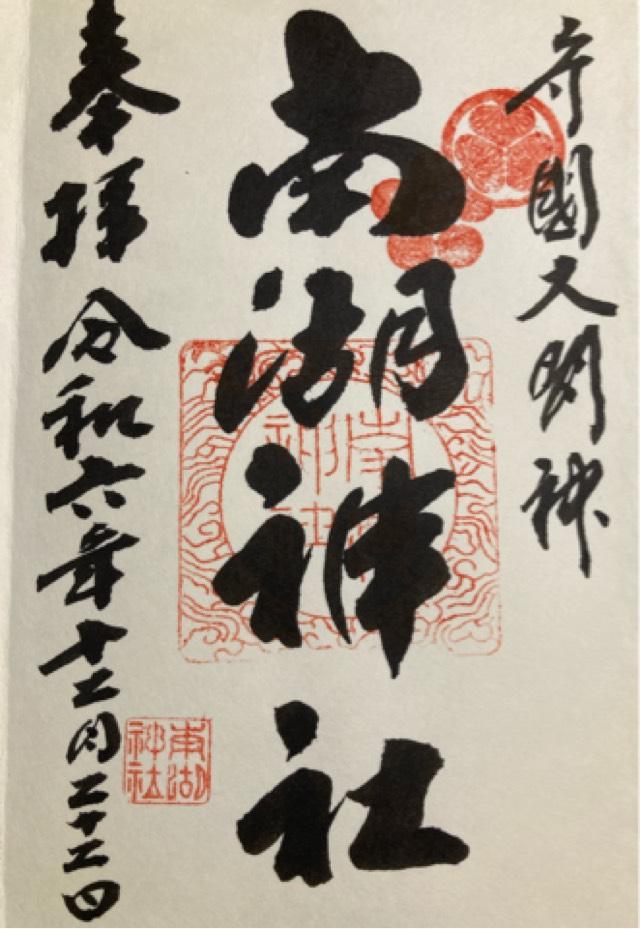 守國大明神
南湖神社
奉拝 令和六年十二月二十二日
南湖神社
南湖神社